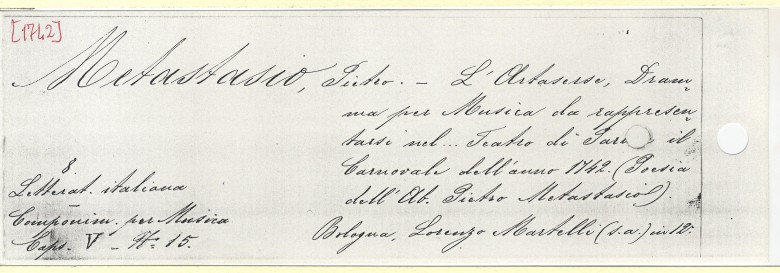 [1742]
Metastasio, Pietro. – L'Artaserse, Dram-
ma per Musica da rappresen-
tarsi nel... Teatro di il
Carnovale dell'anno 1742. (Poesia
dell'Ab. Pietro Metastasio).
Bologna, Lorenzo Martelli (s.a.) in 12.
8
Letterat. italiana
Componim. per Musica
Caps. V – N.º 15.